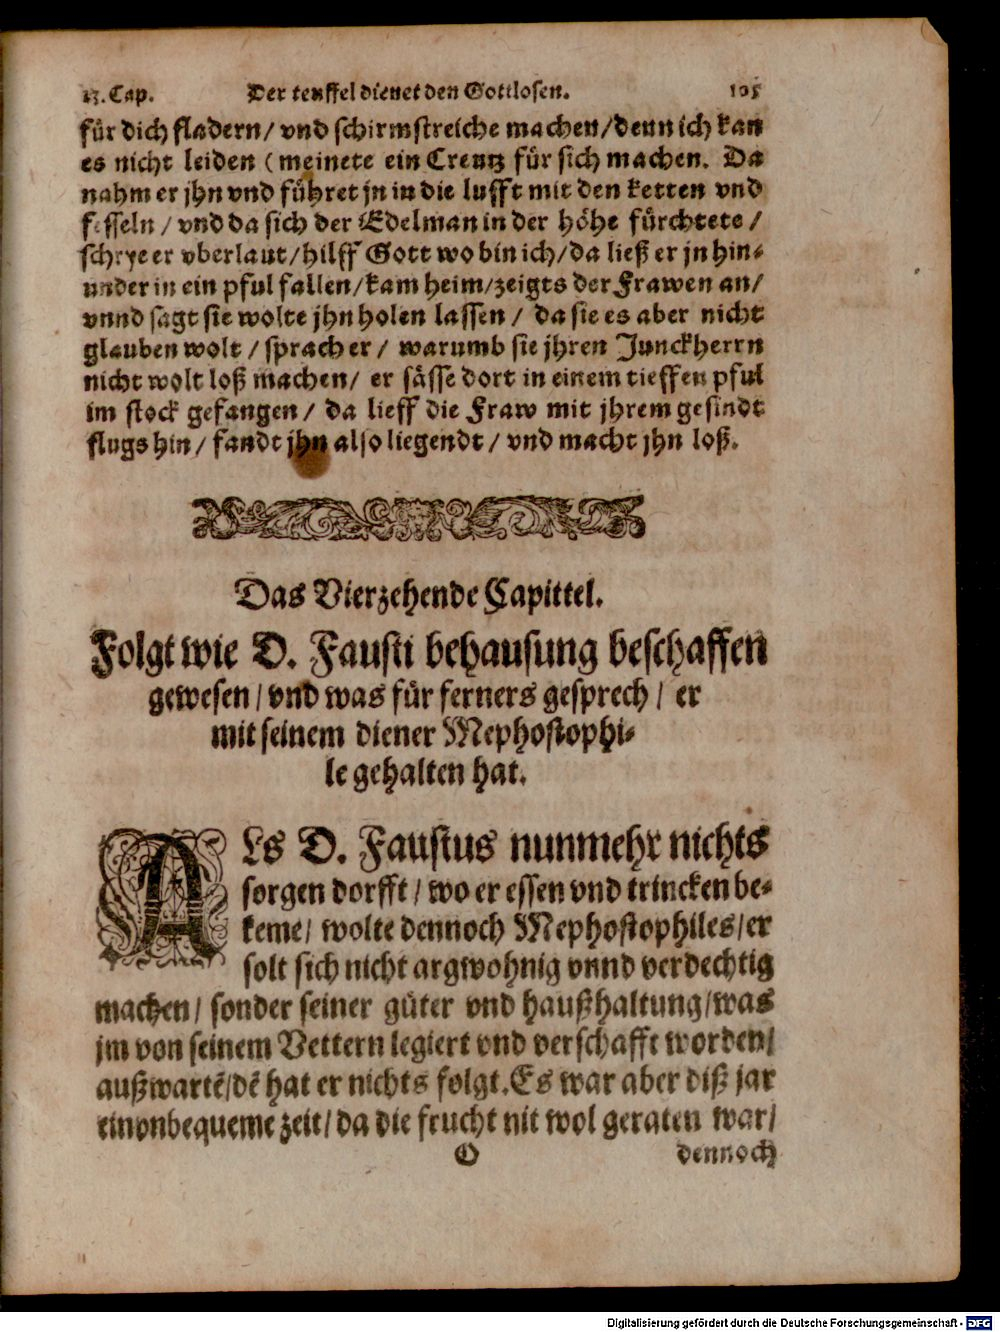 13. Cap. Der teuffel dienet den Gottlosen. 105
für dich fladern/ vnd schirmstreiche machen/ denn ich kan
es nicht leiden (meinete ein Creutz für sich machen. Da
nahm er jhn vnd führet jn in die lufft mit den ketten vnd
fesseln/ vnd da sich der Edelman in der höhe fürchtete/
schrye er vberlaut/ hilff Gott wo bin ich/ da ließ er jn hin-
under in ein pful fallen/ kam heim/ zeigts der Frawen an/
vnnd sagt sie wolte jhn holen lassen/ da sie es aber nicht
glauben wolt/ sprach er/ warumb sie jhren Junckherrn
nicht wolt loß machen/ er sässe dort in einem tieffen pful
im stock gefangen/ da lieff die Fraw mit jhrem gesindt
flugs hin/ fandt jhn also liegendt/ vnd macht jhn loß.
Das Vierzehende Capittel.
Folgt wie D. Fausti behausung beschaffen
gewesen/ vnd was für ferners gesprech/ er
mit seinem diener Mephostophi-
le gehalten hat.
ALs D. Faustus nunmehr nichts
sorgen dorfft/ wo er essen vnd trincken be-
keme/ wolte dennoch Mephostophiles/ er
solt sich nicht argwohnig vnnd verdechtig
machen/ sonder seiner güter vnd haußhaltung/ was
jm von seinem Vettern legiert vnd verschafft worden/
außwartē/ dē hat er nichts folgt. Es war aber diß jar
ein onbequeme zeit/ da die frucht nit wol geraten war/
O dennoch
Digitalisierung gefördert durch die Deutsche Forschungsgemeinschaft - DFG